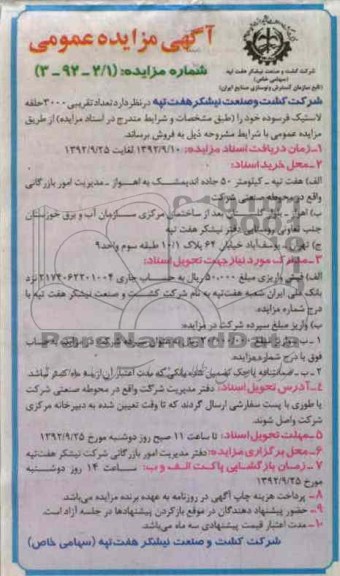 آگهی مزایده عمومی
شماره مزایده: (۲/۱ - ۹۲ - ۳)
شرکت کشت و صنعت نیشکر هفت تپه
(سهامی خاص)
(تابع سازمان گسترش ونوسازی صنایع ایران)
شرکت کشت وصنعت نیشکر هفت تپه درنظر دارد تعداد تقریبی ۳۰۰۰ حلقه
لاستیک فرسوده خود را (طبق مشخصات و شرایط مندرج در اسناد مزایده) از طریق
مزایده عمومی با شرایط مشروحه ذیل به فروش برساند.
۱- زمان دریافت اسناد مزایده: ۱۳۹۲/۹/۱۰ لغایت ۱۳۹۲/۹/۲۵
۲- محل خرید اسناد:
الف) هفت تپه - کیلومتر ۵۰ جاده اندیمشک به اهواز - مدیریت امور بازرگانی
واقع در محوطه صنعتی شرکت
ب) اهواز - بلوار بعد از ساختمان مرکزی سازمان آب و برق خوزستان
جنب تعاونی روستایی دفتر نیشکر هفت تپه
ج) تهران - یوسف آباد خیابان ۶۴ پلاک ۱۰/۱ طبقه سوم واحد ۹
۳- مدارک مورد نیاز جهت تحویل اسناد:
الف) فیش واریزی مبلغ ۵۰۰۰۰۰ ریال به حساب جاری ۲۱۷۴۰۶۲۲۰۱۰۰۴ نزد
بانک ملی ایران شعبه هفت تپه به نام شرکت کشت و صنعت نیشکر هفت تپه با
درج شماره مزایده.
ب) واریز مبلغ سپرده شرکت در مزایده:
۱ - ب - واریز مبلغ ریال به عنوان سپرده شرکت در مزایده به حساب
فوق با درج شماره مزایده
۲ - ب - ضمانتنامه یا چک تضمین شده بانکی که مدت اعتبار آن از سه ماه کمتر نباشد
۴- آدرس تحویل اسناد: دفتر مدیریت شرکت واقع در محوطه صنعتی شرکت
یا طوری با پست سفارشی ارسال گردند که تا وقت تعیین شده به دبیرخانه مرکزی
شرکت واصل شوند.
۵- مهلت تحویل اسناد: تا ساعت ۱۱ صبح روز دوشنبه مورخ ۱۳۹۲/۹/۲۵
۶- محل برگزاری مزایده: دفتر مدیریت امور بازرگانی شرکت نیشکر هفت تپه
۷- زمان بازگشایی پاکت الف و ب: ساعت ۱۴ روز دوشنبه
مورخ ۱۳۹۲/۹/۲۵
۸- پرداخت هزینه چاپ آگهی در روزنامه به عهده برنده مزایده می‌باشد.
۹- حضور پیشنهاد دهندگان در موقع باز کردن پیشنهادها در جلسه آزاد است.
۱۰- مدت اعتبار قیمت پیشنهادی سه ماه می‌باشد.
شرکت کشت و صنعت نیشکر هفت تپه (سهامی خاص)